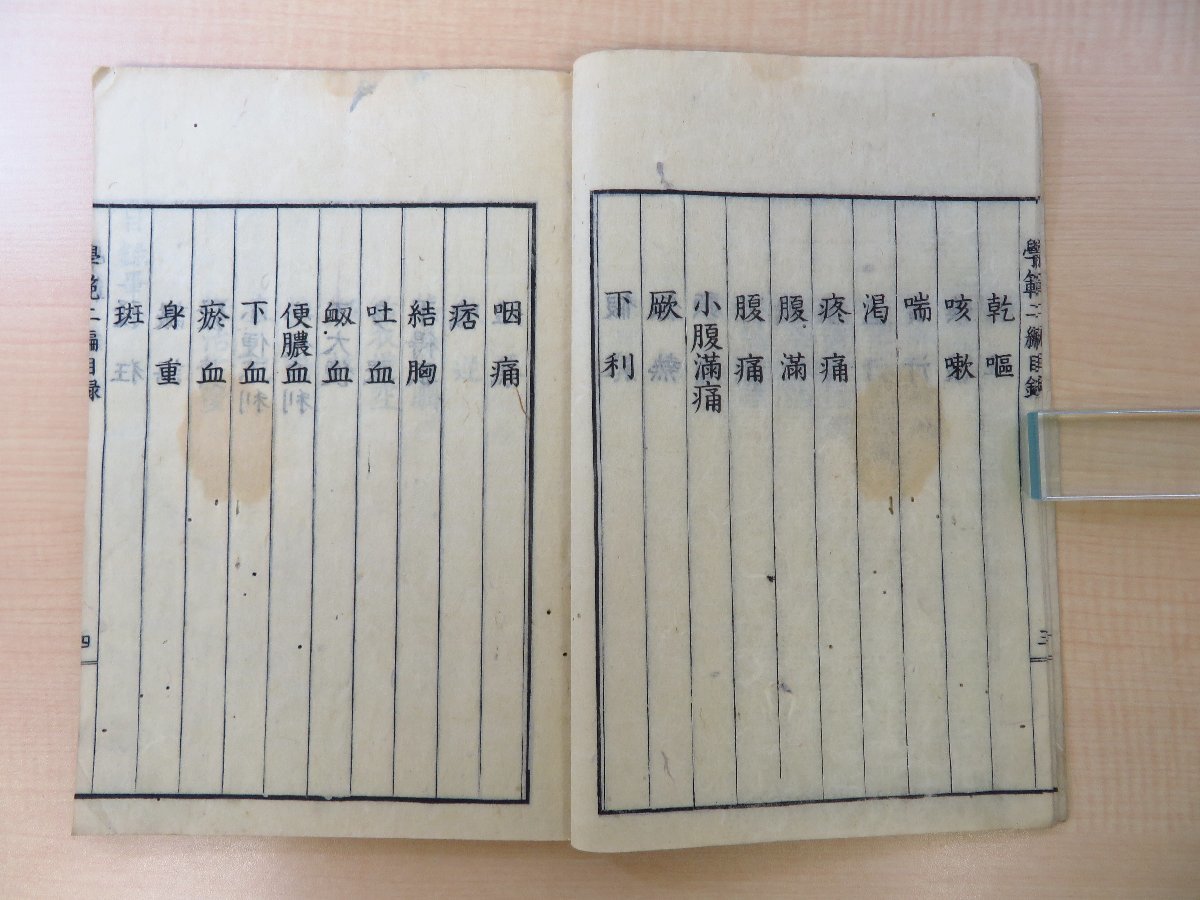 學範二編目錄
三
乾嘔
咳嗽
喘
渴
疼痛
腹滿
腹痛
小腹滿痛
厥
下利
咽痛
痞
結胸
吐血
衄血
便膿血
下血
瘀血
身重
斑
學範二編目錄
四